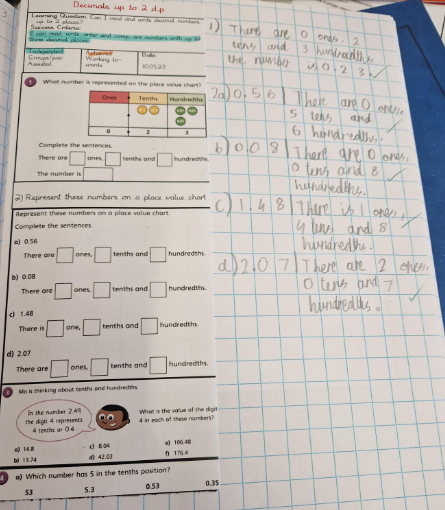 Decimals up to 2 d.p
Learning Question: Can I read and write decimal numbers
up to 2 places?
Success Criteria:
I can read, write, order and compare numbers with up to
three decimal places.
Independent
Groups/peer
Assisted
Working to-
wards
Date:
10.05.23
1 What number is represented on the place value chart?
Ones Tenths Hundredths
0 2 3
Complete the sentences.
There are ones, tenths and hundredths.
The number is
2) Represent these numbers on a place value chart
Represent these numbers on a place value chart.
Complete the sentences.
a) 0.56
There are ones, tenths and hundredths.
b) 0.08
There are ones, tenths and hundredths.
c) 1.48
There is one, tenths and hundredths.
d) 2.07
There are ones, tenths and hundredths.
3 Mo is thinking about tenths and hundredths.
In the number 2.49
the digit 4 represents
4 tenths or 0.4
What is the value of the digit
4 in each of these numbers?
a) 14.8 c) 8.04 e) 106.48
b) 13.74 d) 42.03 f) 176.4
4 a) Which number has 5 in the tenths position?
53 5.3 0.53 0.35
1) There are 0 ones, 2
tens and 3 hundredths
the number is 0.23.
2a) 0.56 There are 0 ones,
5 tens and
6 hundredths.
b) 0.08 There are 0 ones,
0 tens and 8
hundredths.
c) 1.48 There is 1 ones,
4 tens and 8
hundredths.
d) 2.07 There are 2 ones,
0 tens and 7
hundredths.